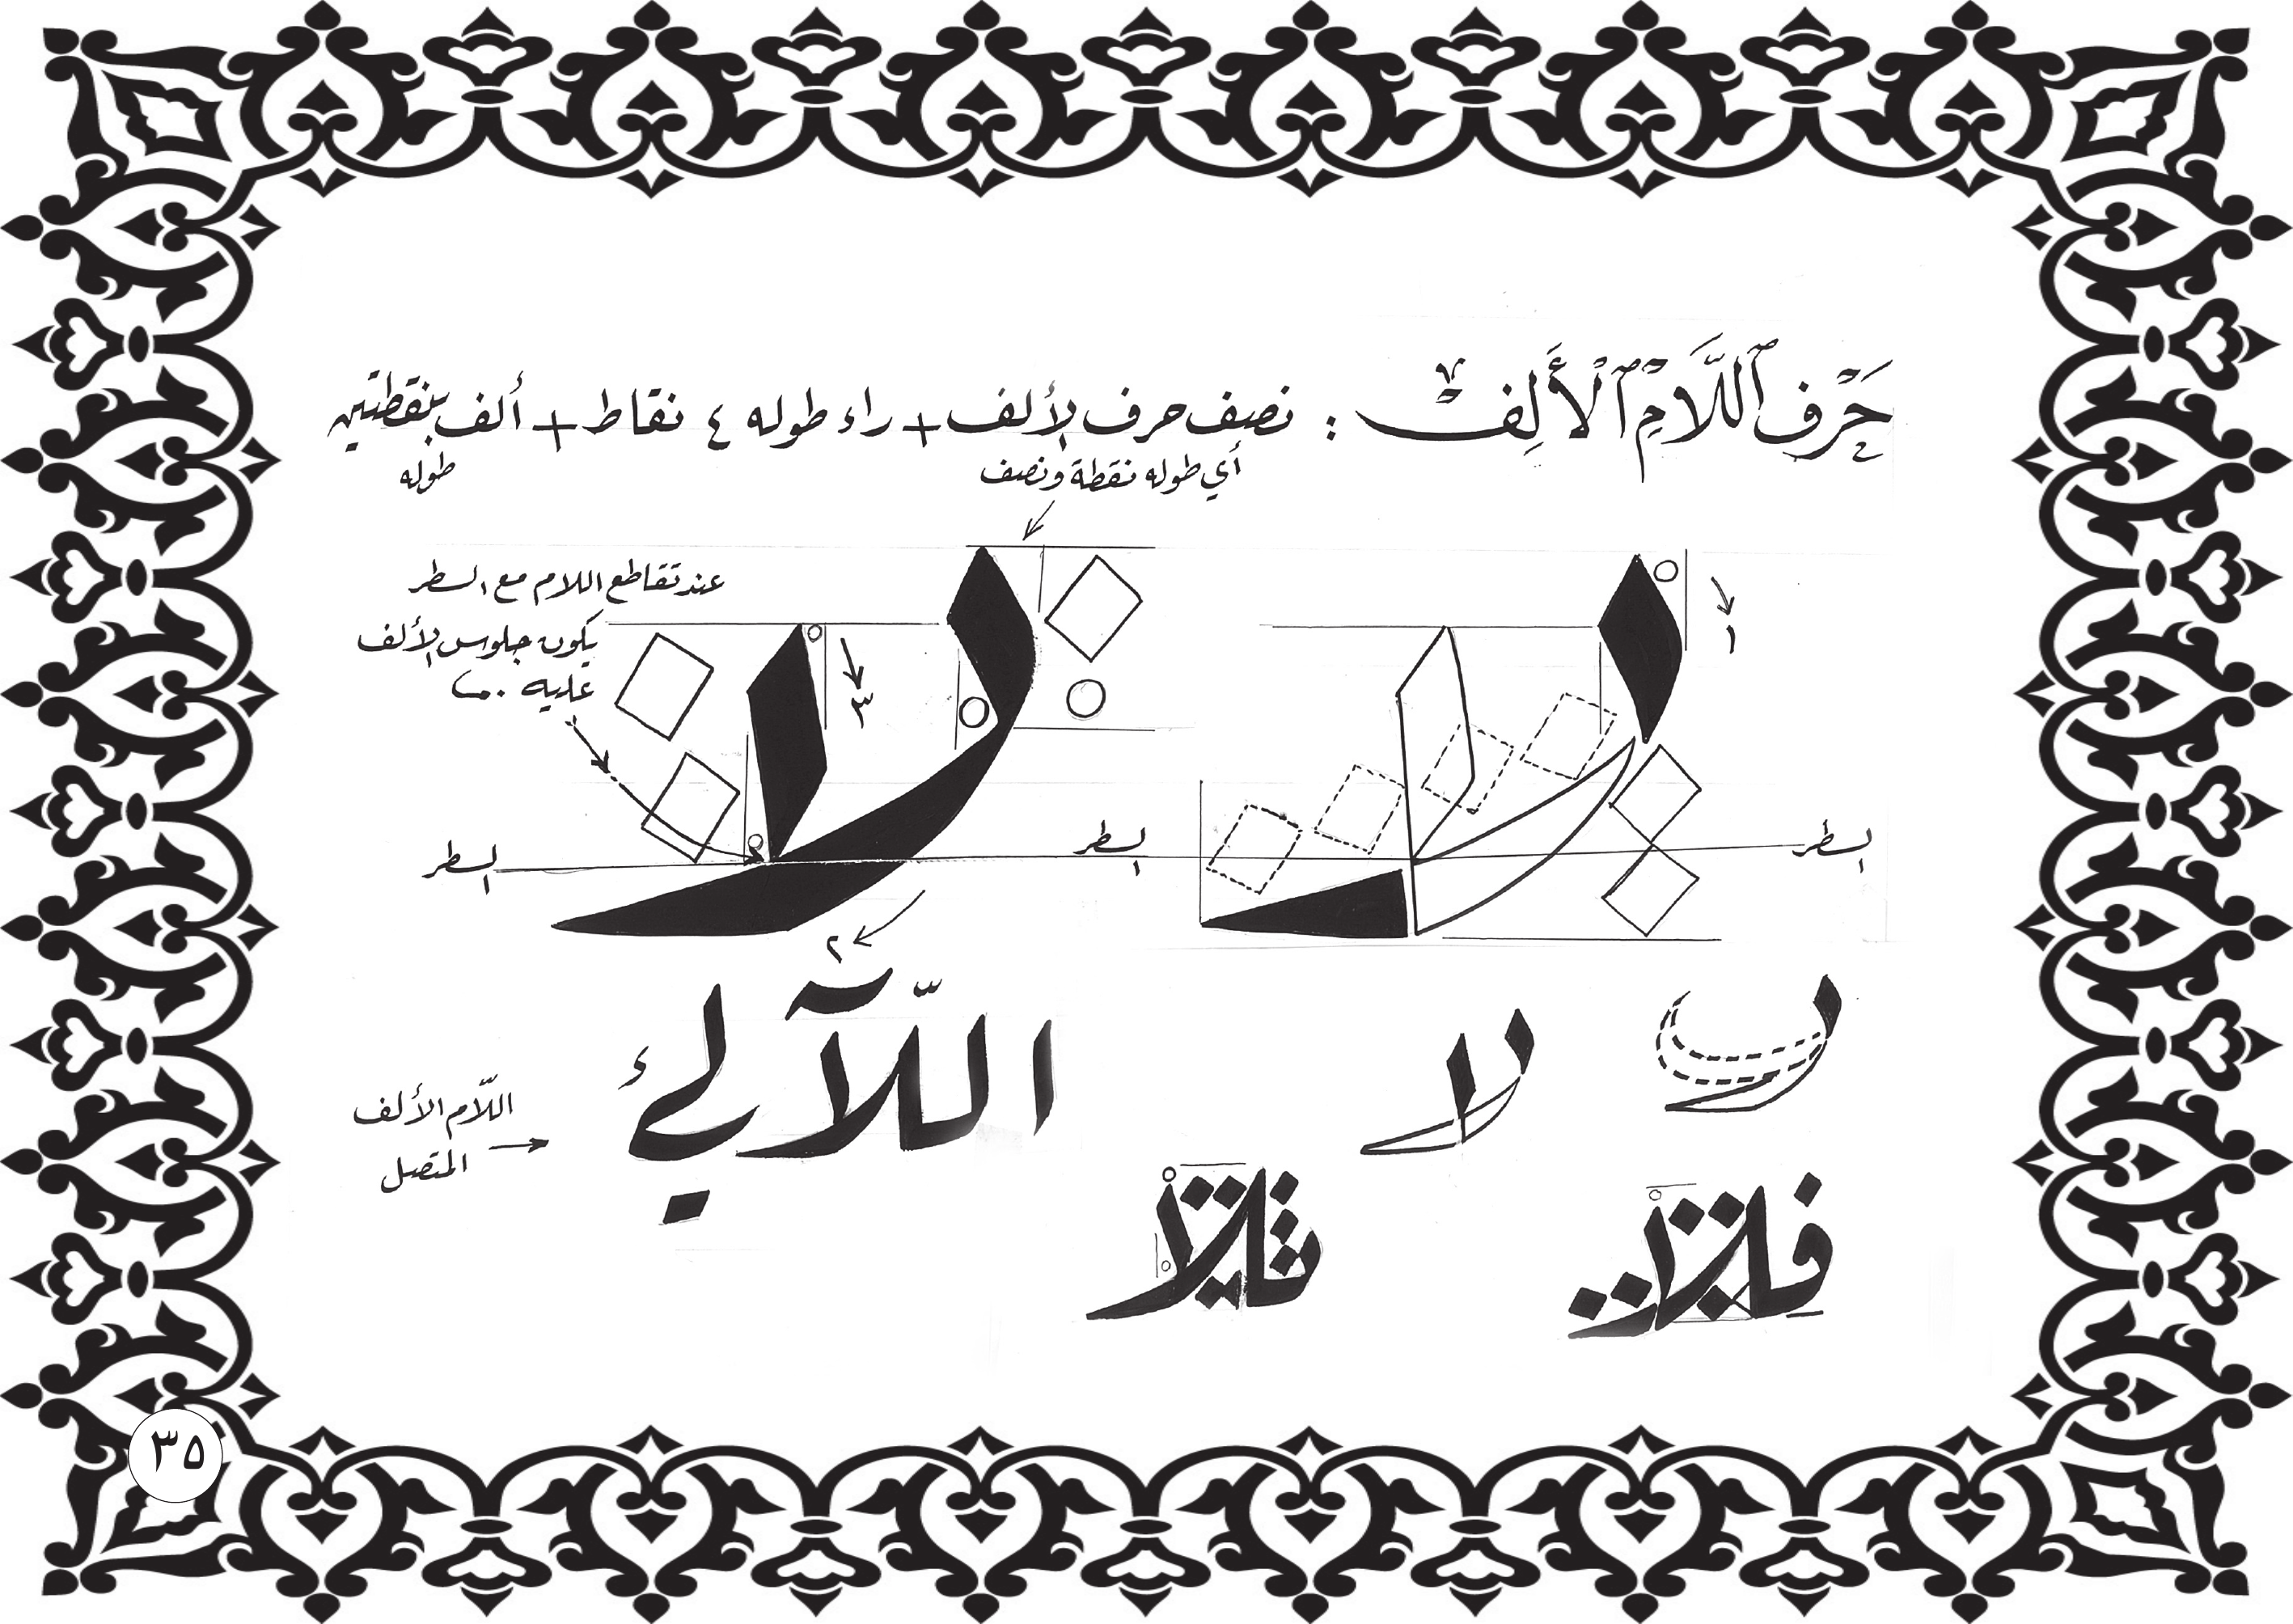 حَرْف اللَّامْ الْأَلِفْ : نصف حرف الألف + راء طوله ٤ نقاط + ألف بنقطتين
أي طوله نقطة ونصف
طوله
عند تقاطع اللام مع السطر
يكون جلوس الألف
عليه ..
١
٣
السطر
السطر
السطر
٢
لا
اللّآلي
اللّام الألف
المتصل
٣٥